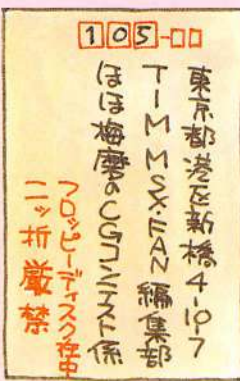 105-□□
東京都港区新橋4-10-7
TIM MSX・FAN編集部
ほほ梅麿のCGコンテスト係
フロッピーディスク在中
二ッ折厳禁